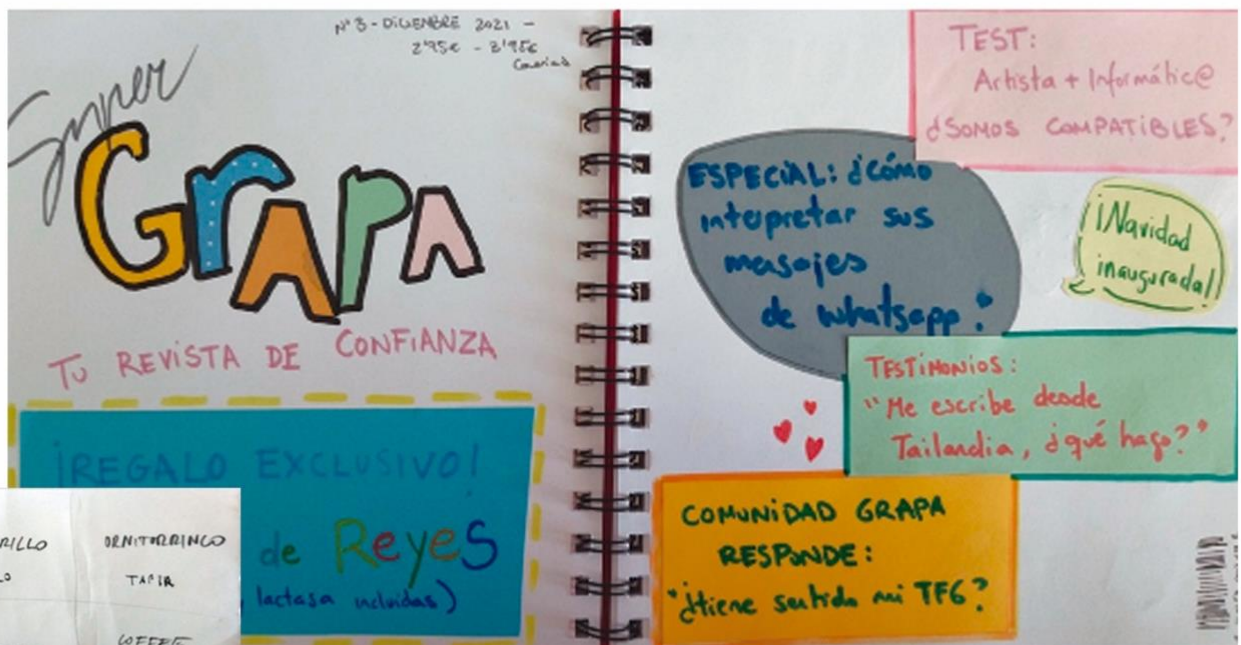 Nº3 - DICIEMBRE 2021 -
2'95€ - 3'15€
Canarias
Super
GrAPA
TU REVISTA DE CONFIANZA
¡REGALO EXCLUSIVO!
de Reyes
lactasa incluidas)
ORNITORRINCO
TAPIR
TEST:
Artista + Informátic@
¿SOMOS COMPATIBLES?
ESPECIAL: ¿Cómo
interpretar sus
mensajes
de whatsapp?
¡Navidad
inaugurada!
TESTIMONIOS:
"Me escribe desde
Tailandia, ¿qué hago?"
COMUNIDAD GRAPA
RESPONDE:
"¿tiene sentido mi TFG?